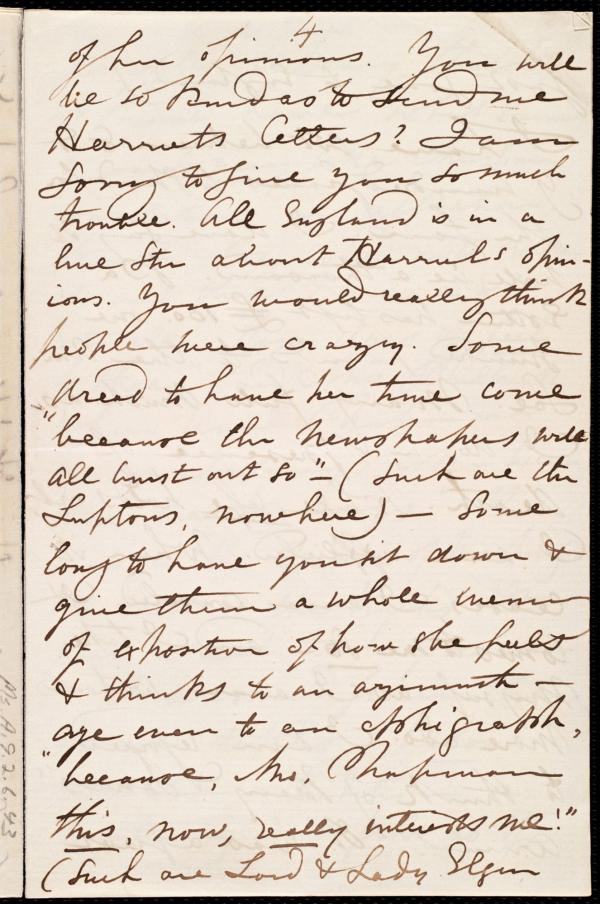 4
of her opinions. You will
be so kind as to send me
Harriets letters? I am
sorry to give you so much
trouble. All England is in a
live stir about Harriet's opin-
ions. You would really think
people were crazy. Some
dread to have her time come
"because the newspapers will
all burst out so" - (such are the
Luptons, nowhere) - Some
long to have you sit down &
give them a whole
of exposition of how she feels
& thinks to an azimuth -
aye even to an
"because, Mrs. Chapman
this, now, really interests me!"
(Such are Lord & Lady Elgin
Ms. A.9.2.6.43